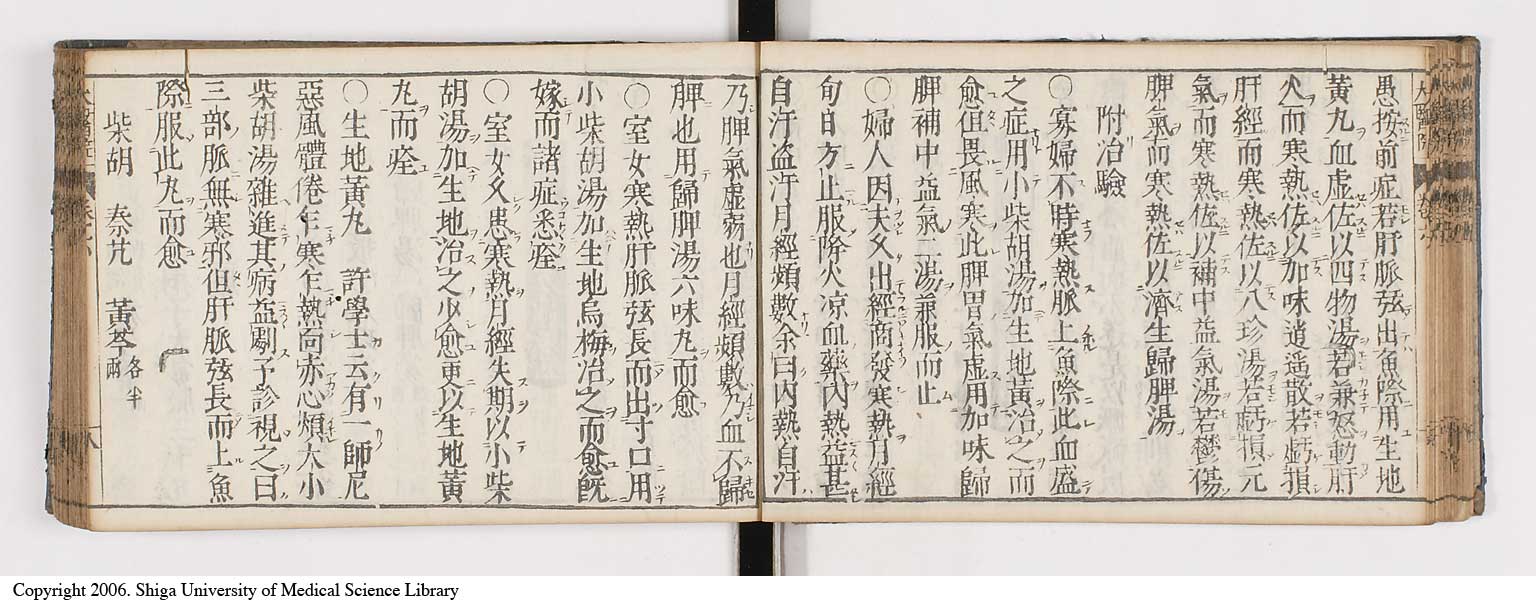 愚按前症若肝脈弦出魚際用生地
黃丸血虚佐以四物湯若兼怒動肝
火而寒熱佐以加味逍遥散若虧損
肝經而寒熱佐以八珍湯若虧損元
氣而寒熱佐以補中益氣湯若鬱傷
脾氣而寒熱佐以濟生歸脾湯
附治驗
〇寡婦不時寒熱脈上魚際此血盛
之症用小柴胡湯加生地黃治之而
愈但畏風寒此脾胃氣虚用加味歸
脾補中益氣二湯兼服而止
〇婦人因夫久出經商發寒熱月經
旬日方止服降火凉血藥內熱益甚
自汗盗汗月經頻數余曰內熱自汗
乃脾氣虚弱也月經頻數乃血不歸
脾也用歸脾湯六味丸而愈
〇室女寒熱肝脈弦長而出寸口用
小柴胡湯加生地烏梅治之而愈旣
嫁而諸症悉痊
〇室女久患寒熱月經失期以小柴
胡湯加生地治之少愈更以生地黃
丸而痊
〇生地黃丸 許學士云有一師尼
惡風體倦乍寒乍熱面赤心煩大小
柴胡湯雜進其病益劇予診視之曰
三部脈無寒邪但肝脈弦長而上魚
際服此丸而愈
柴胡 秦艽 黃芩各半兩
八
Copyright 2006. Shiga University of Medical Science Library